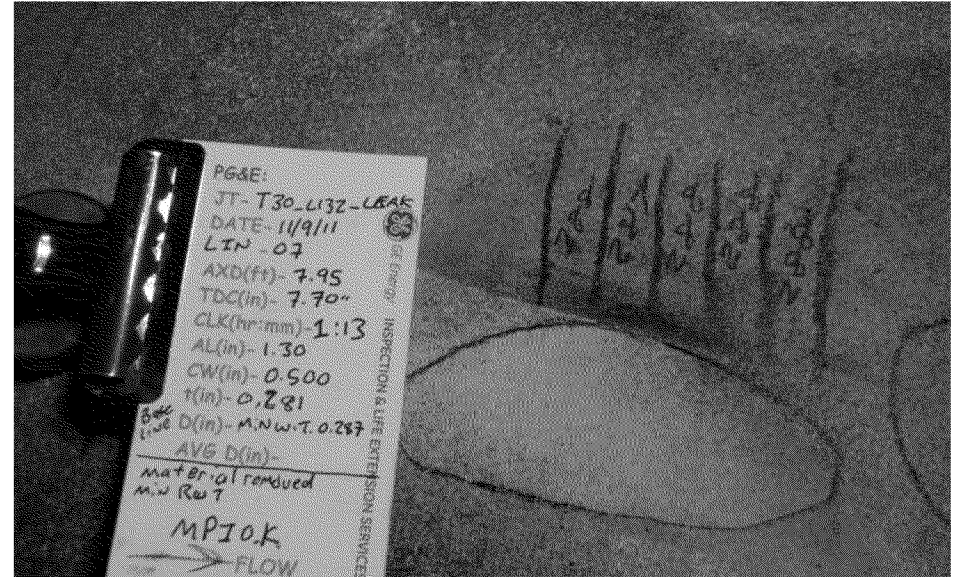 PG&E:
JT- T30_L132-LEAK
DATE- 11/9/11
LIN -07
AXD(ft)- 7.95
TDC(in)- 7.70"
CLK(hr:mm)- 1:13
AL(in)- 1.30
CW(in)- 0.500
t(in)- 0.281
D(in)- M.N.W.T. 0.287
AVG D(in)-
material removed
Min RWT
MPI O.K
FLOW
GE Energy INSPECTION & LIFE EXTENSION SERVICES